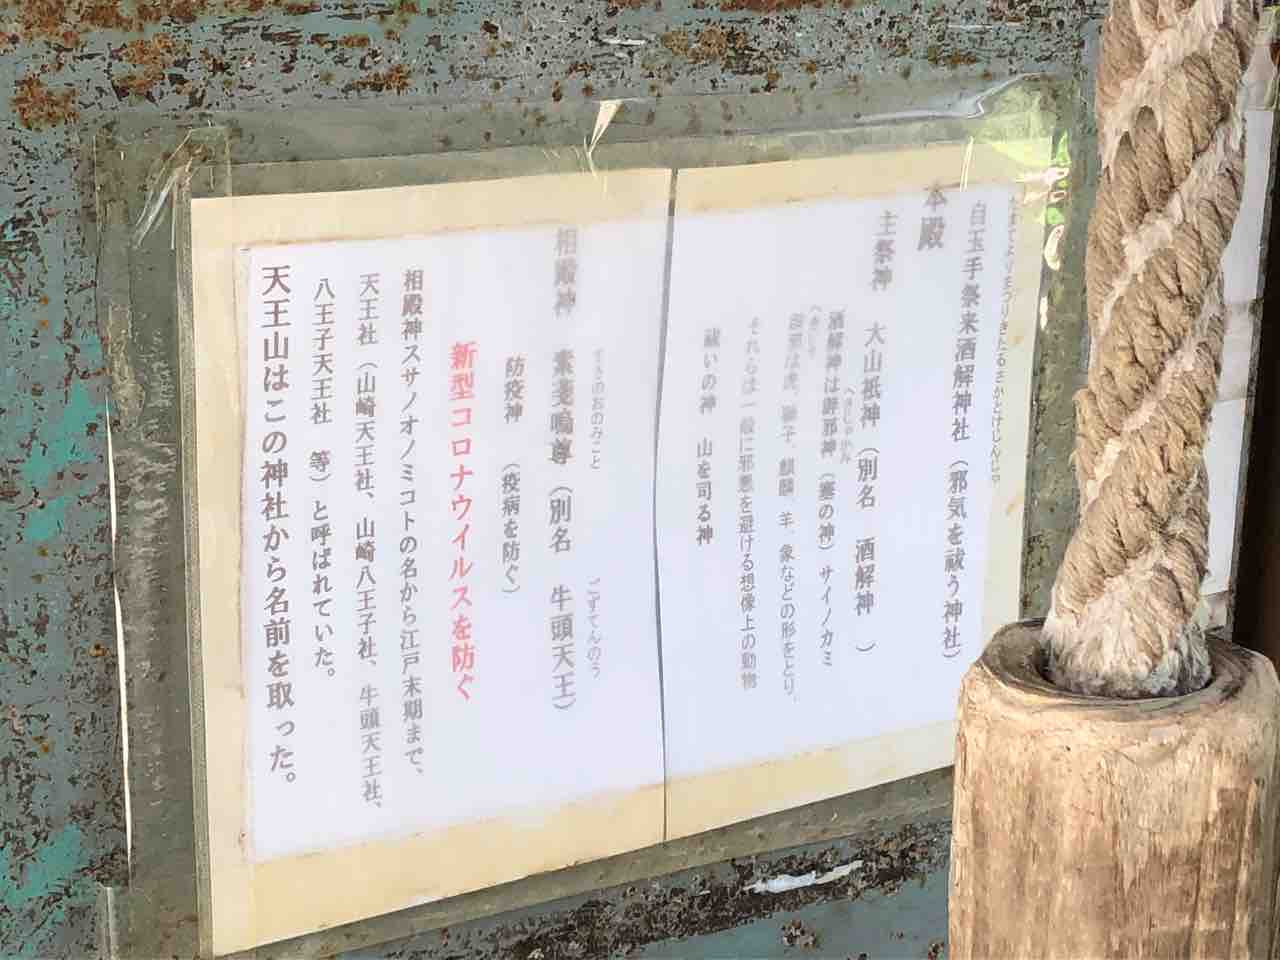 たまでよりまつりきたるさかとけじんじゃ
自玉手祭来酒解神社（邪気を祓う神社）
本殿
主祭神　大山祇神（別名　酒解神　）
（へきじゃがみ
酒解神は辟邪神（塞の神）サイノカミ
（へきじゃ
辟邪は虎、獅子、麒麟、羊、象などの形をとり、
それらは一般に邪悪を避ける想像上の動物
祓いの神　山を司る神
すさのおのみこと　ごずてんのう
相殿神　素戔嗚尊（別名　牛頭天王）
防疫神　（疫病を防ぐ）
新型コロナウイルスを防ぐ
相殿神スサノオノミコトの名から江戸末期まで、
天王社（山崎天王社、山崎八王子社、牛頭天王社、
八王子天王社　等）と呼ばれていた。
天王山はこの神社から名前を取った。